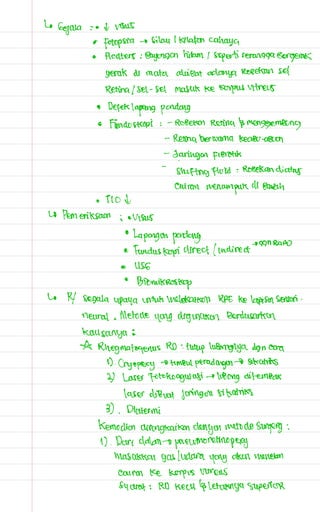 ↳ Gejala : • ↓ visus
• Fotopsia → Silau / kilatan cahaya
• Floaters : Bayangan hitam / seperti serangga Bergerak
gerak di mata akibat adanya Robekan sel
Retina / sel-sel masuk ke korpus vitreus
• Defek lapang pandang
• Funduskopi : - Robekan Retina & menggembung
- Retina berwarna keabu-abuan
- Jaringan Fibrotik
- Shifting Fluid : Robekan diatas
cairan menumpuk di Bawah
• TIO ↓
↳ Pemeriksaan : • Visus
• Lapangan pandang
• Funduskopi direct / indirect
• USG
• Biomikroskop
↳ R/ Segala upaya untuk melekatkan RPE ke lapisan sensori-
neural. Metode yang digunakan Berdasarkan
kausanya :
☆ Rhegmatogenus RD : tutup lubangnya dgn cara
1) Cryopexy → timbul peradangan → sikatriks
2) Laser Fotokoagulasi → lubang ditembak
laser dibuat jaringan sikatriks
3). Diatermi
Kemudian dirangkaikan dengan metode Surgery :
1) Dari dalam → pneumoretinopexy
Masukkan gas / udara yang akan menekan
cairan ke korpus vitreus
Syarat : RD kecil & letaknya superior